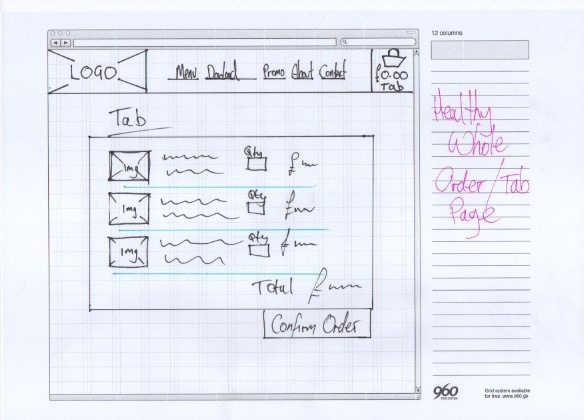 12 columns
LOGO
Menu Download Promo About Contact
£0.00
Tab
Tab
Img Qty £
Img Qty £
Img Qty £
Total £
Confirm Order
Healthy
Whole
Order/Tab
Page
960
GRID SYSTEM
Grid system available
for free: www.960.gs